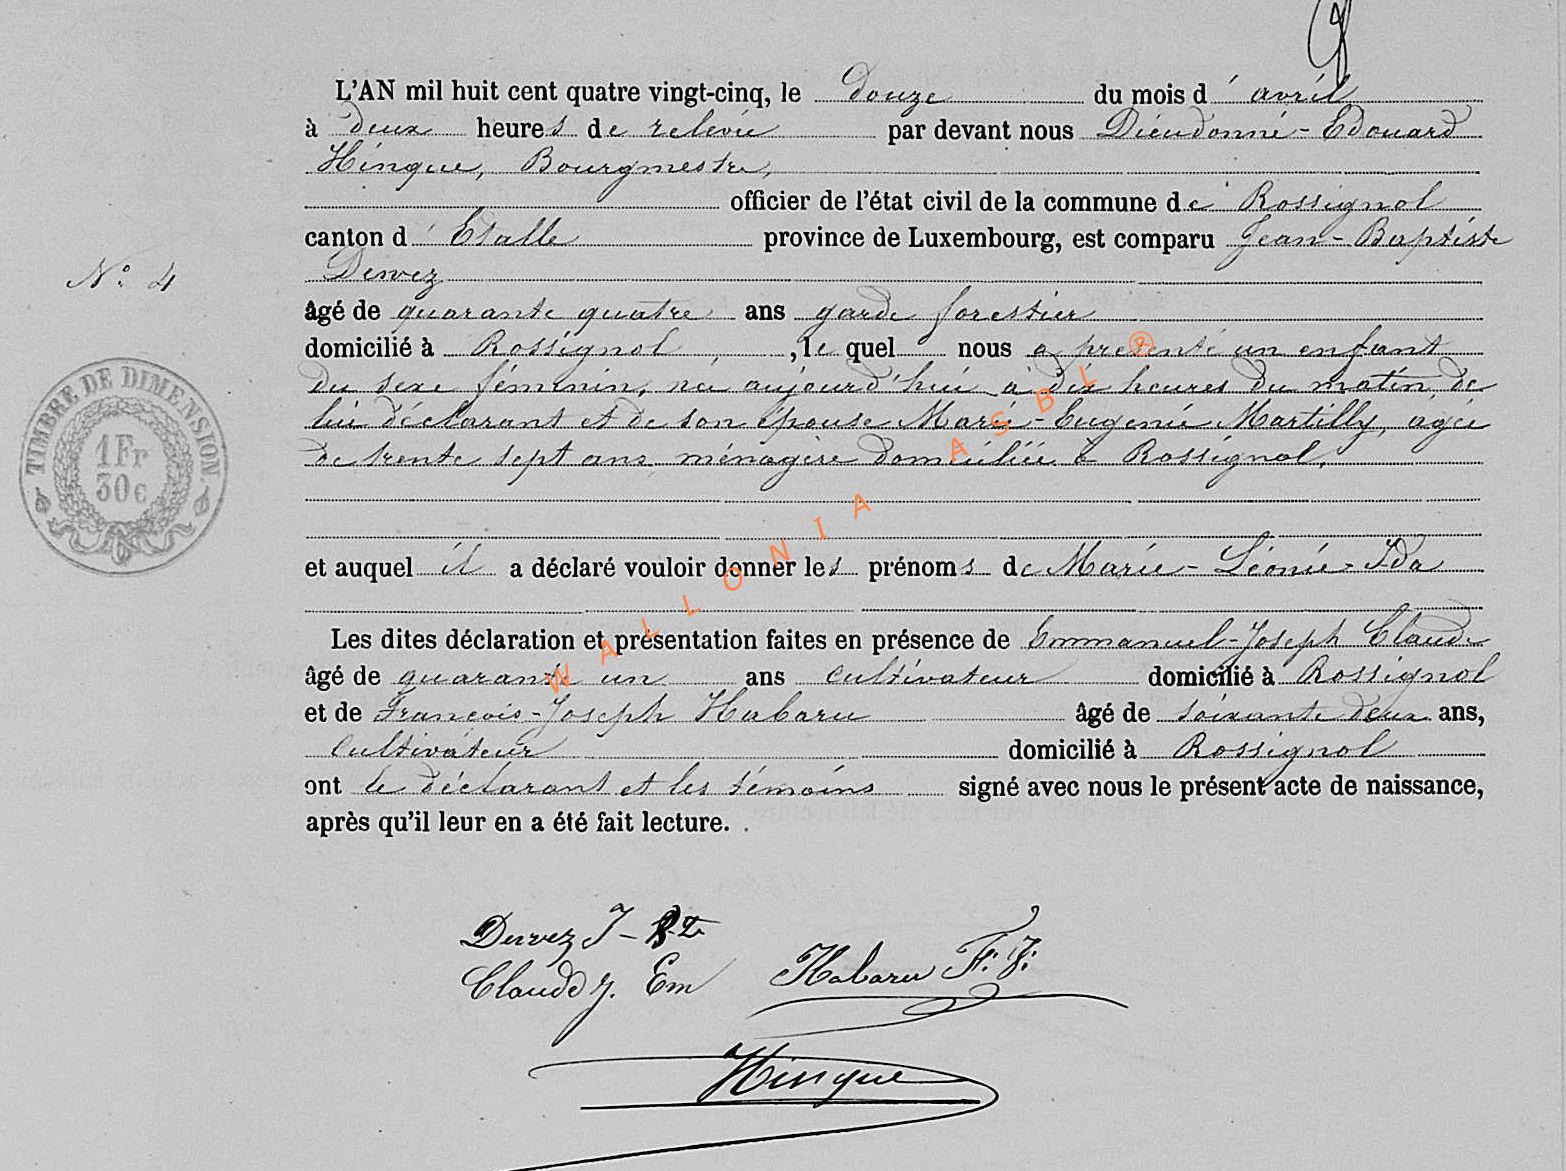 L'AN mil huit cent quatre vingt-cinq, le douze du mois d'avril
à deux heures de relevée par devant nous Dieudonné-Edouard
Hinque, Bourgmestre,
officier de l'état civil de la commune de Rossignol
canton d'Etalle province de Luxembourg, est comparu Jean-Baptiste
N° 4
Dervez
âgé de quarante quatre ans garde forestier
domicilié à Rossignol, , le quel nous a présenté un enfant
du sexe féminin, né aujourd'hui à dix heures du matin de
lui déclarant et de son épouse Marie-Eugénie Martilly, agée
de trente sept ans, ménagère domiciliée à Rossignol.
TIMBRE DE DIMENSION
1 Fr
30c
et auquel il a déclaré vouloir donner les prénoms de Marie-Léonie-Ida
Les dites déclaration et présentation faites en présence de Emmanuel-Joseph Claude
âgé de quarante un ans cultivateur domicilié à Rossignol
et de François-Joseph Habaru âgé de soixante deux ans,
cultivateur domicilié à Rossignol
ont le déclarant et les témoins signé avec nous le présent acte de naissance,
après qu'il leur en a été fait lecture.
Dervez J-Bte
Claude J. Em Habaru F. J.
Hinque
WALLONIA ASBL ®